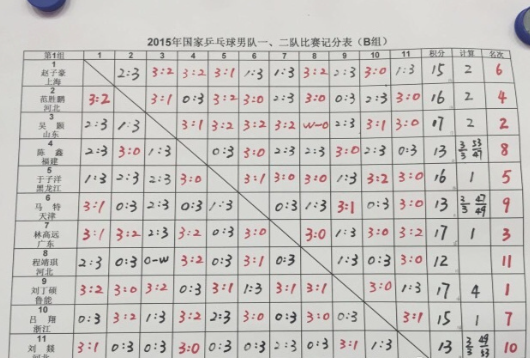 2015年国家乒乓球男队一、二队比赛记分表（B组）
第1组 1 2 3 4 5 6 7 8 9 10 11 积分 计算 名次
1
赵子豪 2:3 3:2 3:2 3:1 1:3 1:3 3:2 2:3 3:0 1:3 15 2 6
上海
2
范胜鹏 3:2 3:1 0:3 3:2 3:0 2:3 3:0 0:3 2:3 3:0 16 2 4
河北
3
吴颢 2:3 1:3 3:1 3:2 3:2 3:2 W-0 2:3 3:1 3:0 17 2 2
山东
4
陈鑫 2:3 3:0 1:3 0:3 3:0 2:3 2:3 3:0 2:3 0:3 13 8
福建
5
于子洋 1:3 2:3 2:3 3:0 3:1 3:0 3:0 1:3 3:2 3:0 16 1 5
黑龙江
6
马特 3:1 0:3 2:3 0:3 1:3 0:3 1:3 3:1 0:3 3:0 13 9
天津
7
林高远 3:1 3:2 2:3 3:2 0:3 3:0 3:0 1:3 3:0 3:2 17 1 3
广东
8
程靖琪 2:3 0:3 0-W 3:2 0:3 3:1 0:3 1:3 0:3 0:3 12 11
河北
9
刘丁硕 3:2 3:0 3:2 0:3 3:1 1:3 3:1 3:1 3:0 1:3 17 4 1
鲁能
10
吕翔 0:3 3:2 1:3 3:2 2:3 3:0 0:3 3:0 0:3 3:1 15 1 7
浙江
11
刘燚 3:1 0:3 0:3 3:0 0:3 0:3 2:3 0:3 3:1 1:3 13 10